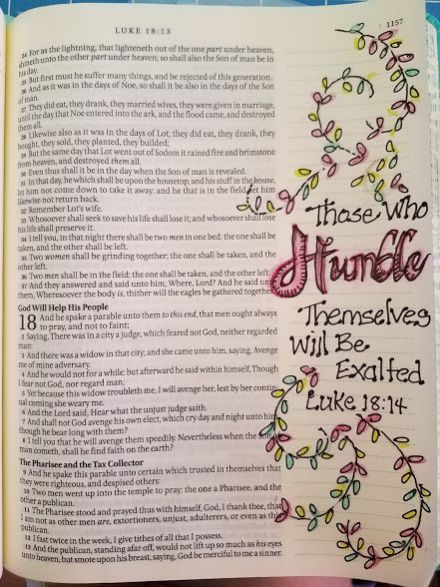 LUKE 18:13
1157
24 For as the lightning, that lighteneth out of the one part under heaven,
shineth unto the other part under heaven; so shall also the Son of man be in
his day.
25 But first must he suffer many things, and be rejected of this generation.
26 And as it was in the days of Noe, so shall it be also in the days of the Son
of man.
27 They did eat, they drank, they married wives, they were given in marriage,
until the day that Noe entered into the ark, and the flood came, and destroyed
them all.
28 Likewise also as it was in the days of Lot; they did eat, they drank, they
bought, they sold, they planted, they builded;
29 But the same day that Lot went out of Sodom it rained fire and brimstone
from heaven, and destroyed them all.
30 Even thus shall it be in the day when the Son of man is revealed.
31 In that day, he which shall be upon the housetop, and his stuff in the house,
let him not come down to take it away: and he that is in the field, let him
likewise not return back.
32 Remember Lot's wife.
33 Whosoever shall seek to save his life shall lose it; and whosoever shall lose
his life shall preserve it.
34 I tell you, in that night there shall be two men in one bed; the one shall be
taken, and the other shall be left.
35 Two women shall be grinding together; the one shall be taken, and the
other left.
36 Two men shall be in the field; the one shall be taken, and the other left.
37 And they answered and said unto him, Where, Lord? And he said unto
them, Wheresoever the body is, thither will the eagles be gathered together.
God Will Help His People
18 And he spake a parable unto them to this end, that men ought always
to pray, and not to faint;
2 Saying, There was in a city a judge, which feared not God, neither regarded
man:
3 And there was a widow in that city; and she came unto him, saying, Avenge
me of mine adversary.
4 And he would not for a while: but afterward he said within himself, Though
I fear not God, nor regard man;
5 Yet because this widow troubleth me, I will avenge her, lest by her contin-
ual coming she weary me.
6 And the Lord said, Hear what the unjust judge saith.
7 And shall not God avenge his own elect, which cry day and night unto him,
though he bear long with them?
8 I tell you that he will avenge them speedily. Nevertheless when the Son of
man cometh, shall he find faith on the earth?
The Pharisee and the Tax Collector
9 And he spake this parable unto certain which trusted in themselves that
they were righteous, and despised others:
10 Two men went up into the temple to pray; the one a Pharisee, and the
other a publican.
11 The Pharisee stood and prayed thus with himself, God, I thank thee, that
I am not as other men are, extortioners, unjust, adulterers, or even as this
publican.
12 I fast twice in the week, I give tithes of all that I possess.
13 And the publican, standing afar off, would not lift up so much as his eyes
unto heaven, but smote upon his breast, saying, God be merciful to me a sinner.
Those Who
Humble
Themselves
Will Be
Exalted
Luke 18:14